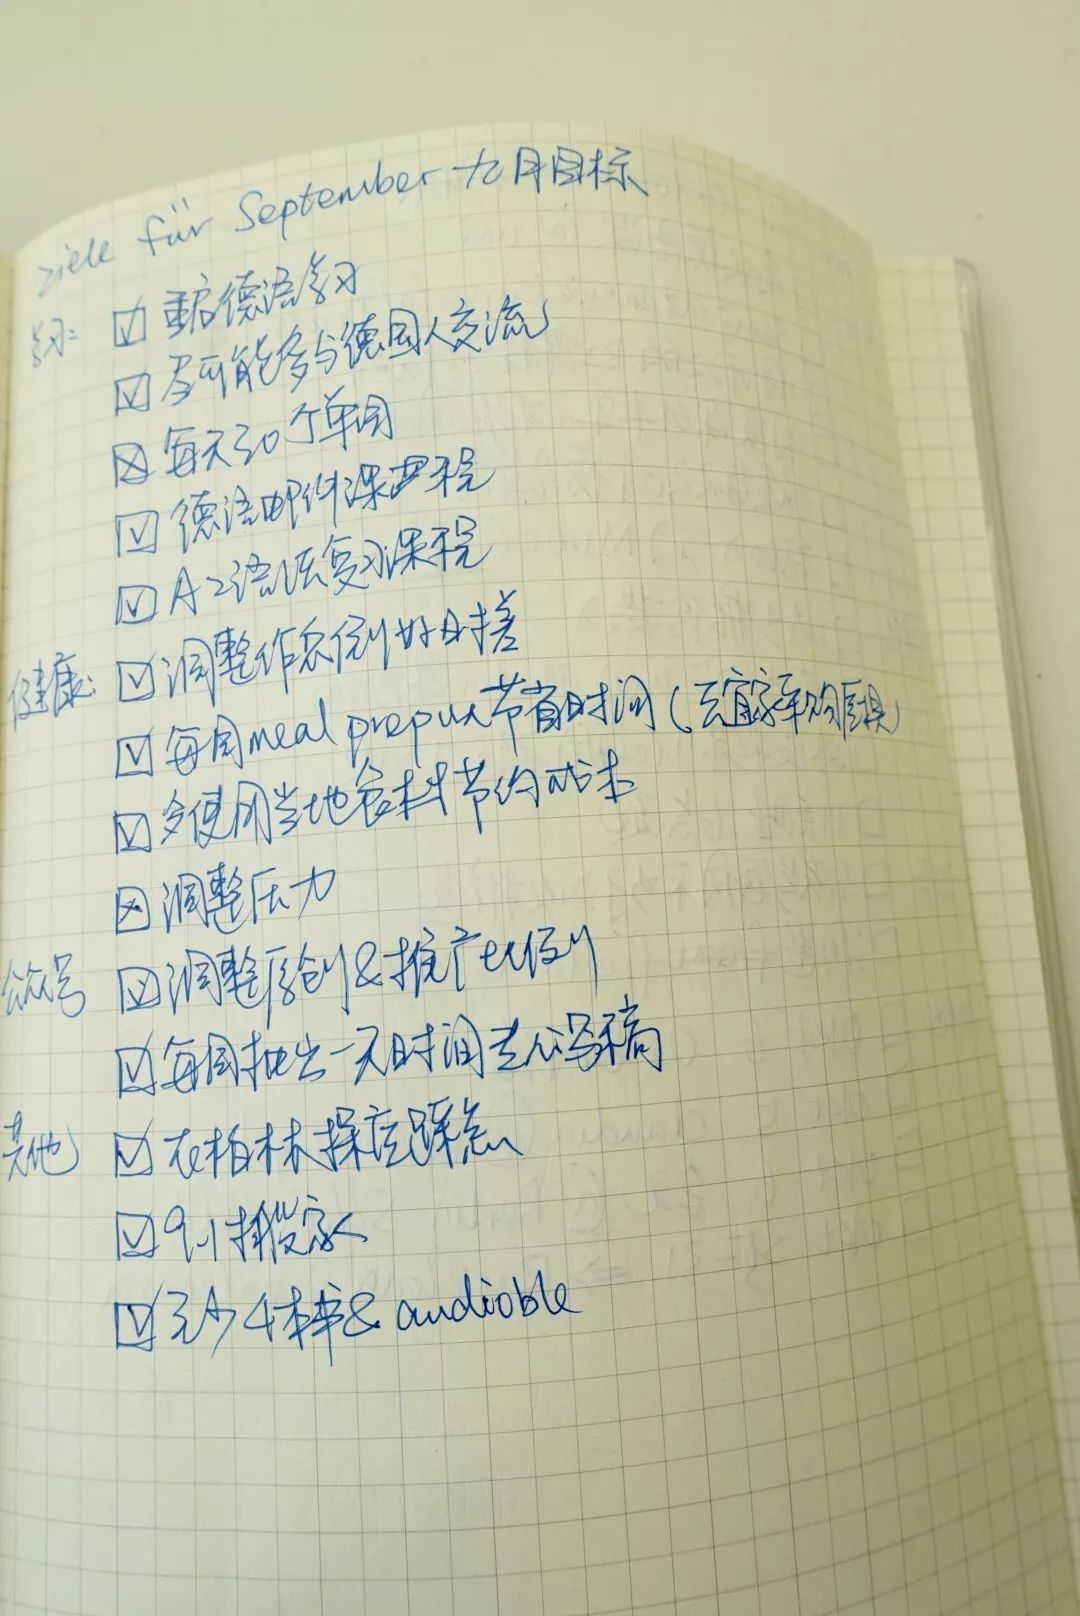 Ziele für September 九月目标
学习: 重启德语学习
尽可能多与德国人交流
每天30个单词
德语邮件课程
A2语法复习课程
健康: 调整作息倒好时差
每周meal prep 节省时间(去宜家采购厨具)
多使用当地食材节约成本
调整压力
公众号 调整原创&推广比例
每周抽出一天时间专心写稿
其他 在柏林探店踩点
9.1搬家
至少4本书& audioble